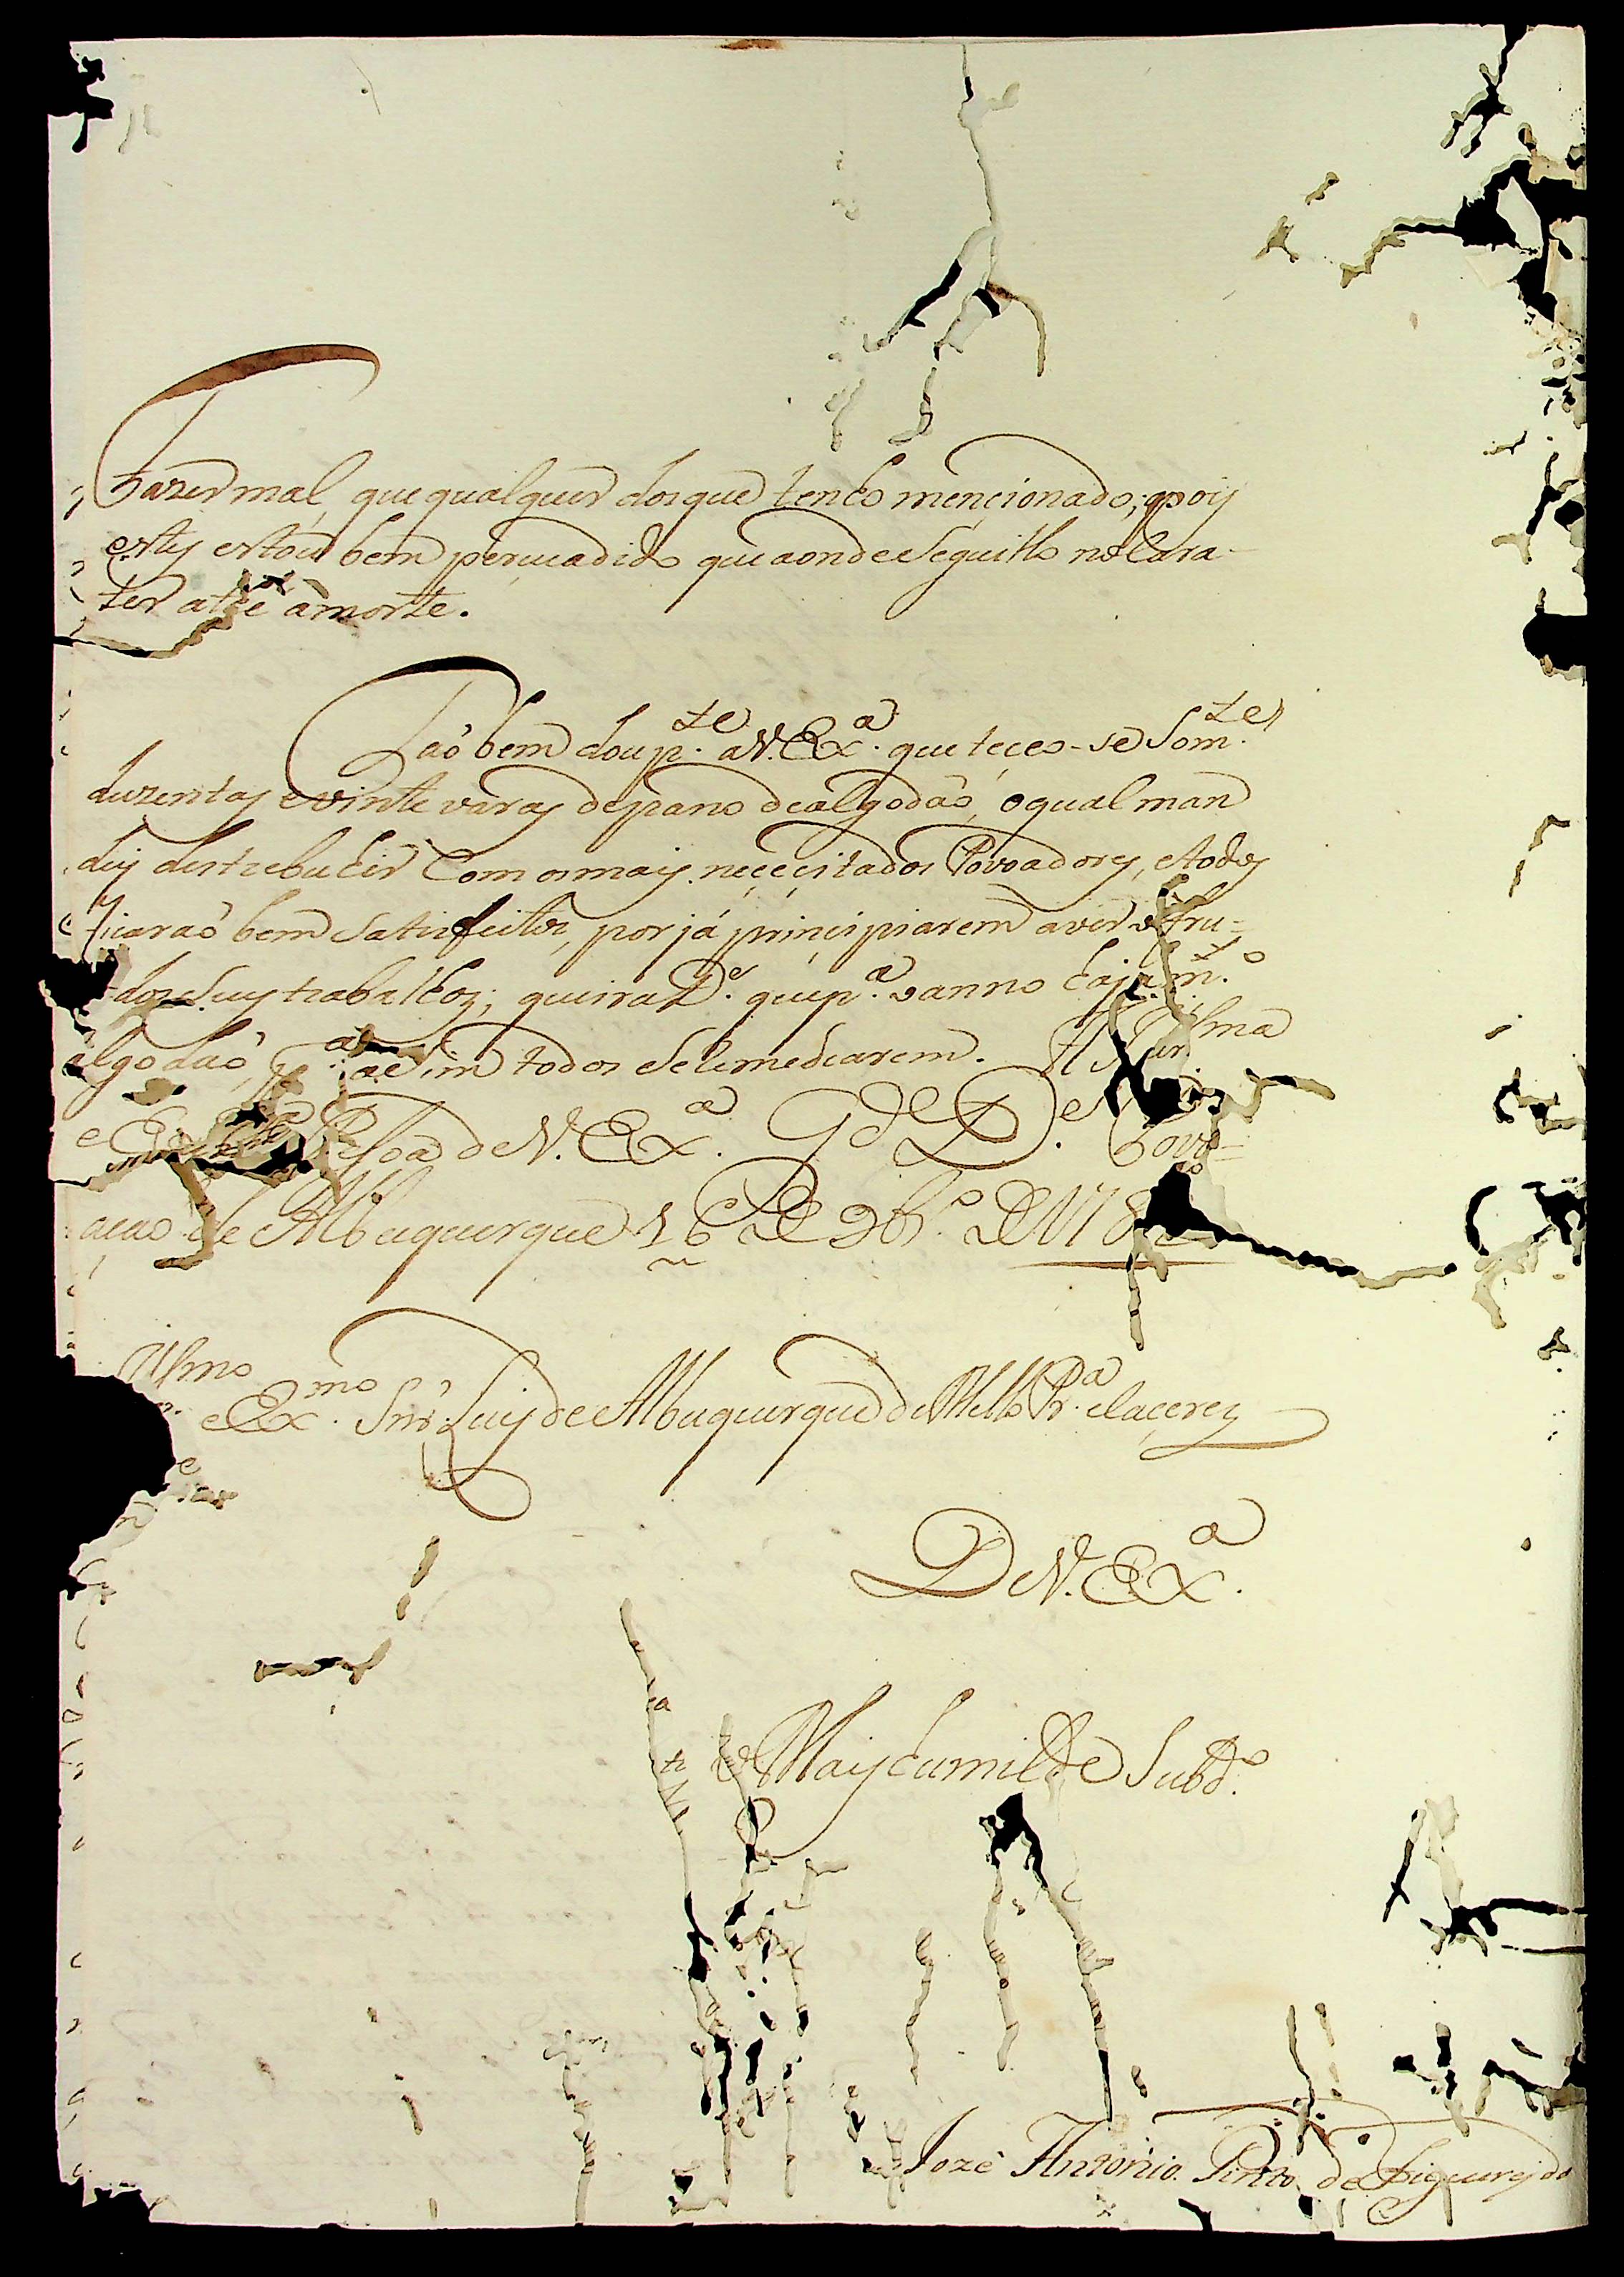 Fazer mal, que qualquer dos que tenho mençionado; pois
estes estou bem persuadido que aonde Seguillo no Cara-
ter athe a morte.
Taõ bem dou p.te a V. Ex.a que teçeo-se Som.te
duzentas e vinte varas de pano de algodaõ, o qual man
dey destrebuhir Com os mais neçeçitados Povoadores, e todos
ficaraõ bem Satisfeitos, por já prinçipiarem a ver o fru-
dos Seus trabalhos; queira D.s que p.a o anno haja m.to
algodaõ, p.a aSim todos Se Remediarem. A Illma
e Pesoa de V. Ex.a G.de D.s Povo=
açaõ de Albuquerque 16 De 9br.o De 178
Illmo
e Ex.mo Snr. Luis de Albuquerque de Mello Pr.a e Caçeres
De V. Ex.a
o Mais humilde Subd.o
Jozé Antonio Pinto de Figueiredo